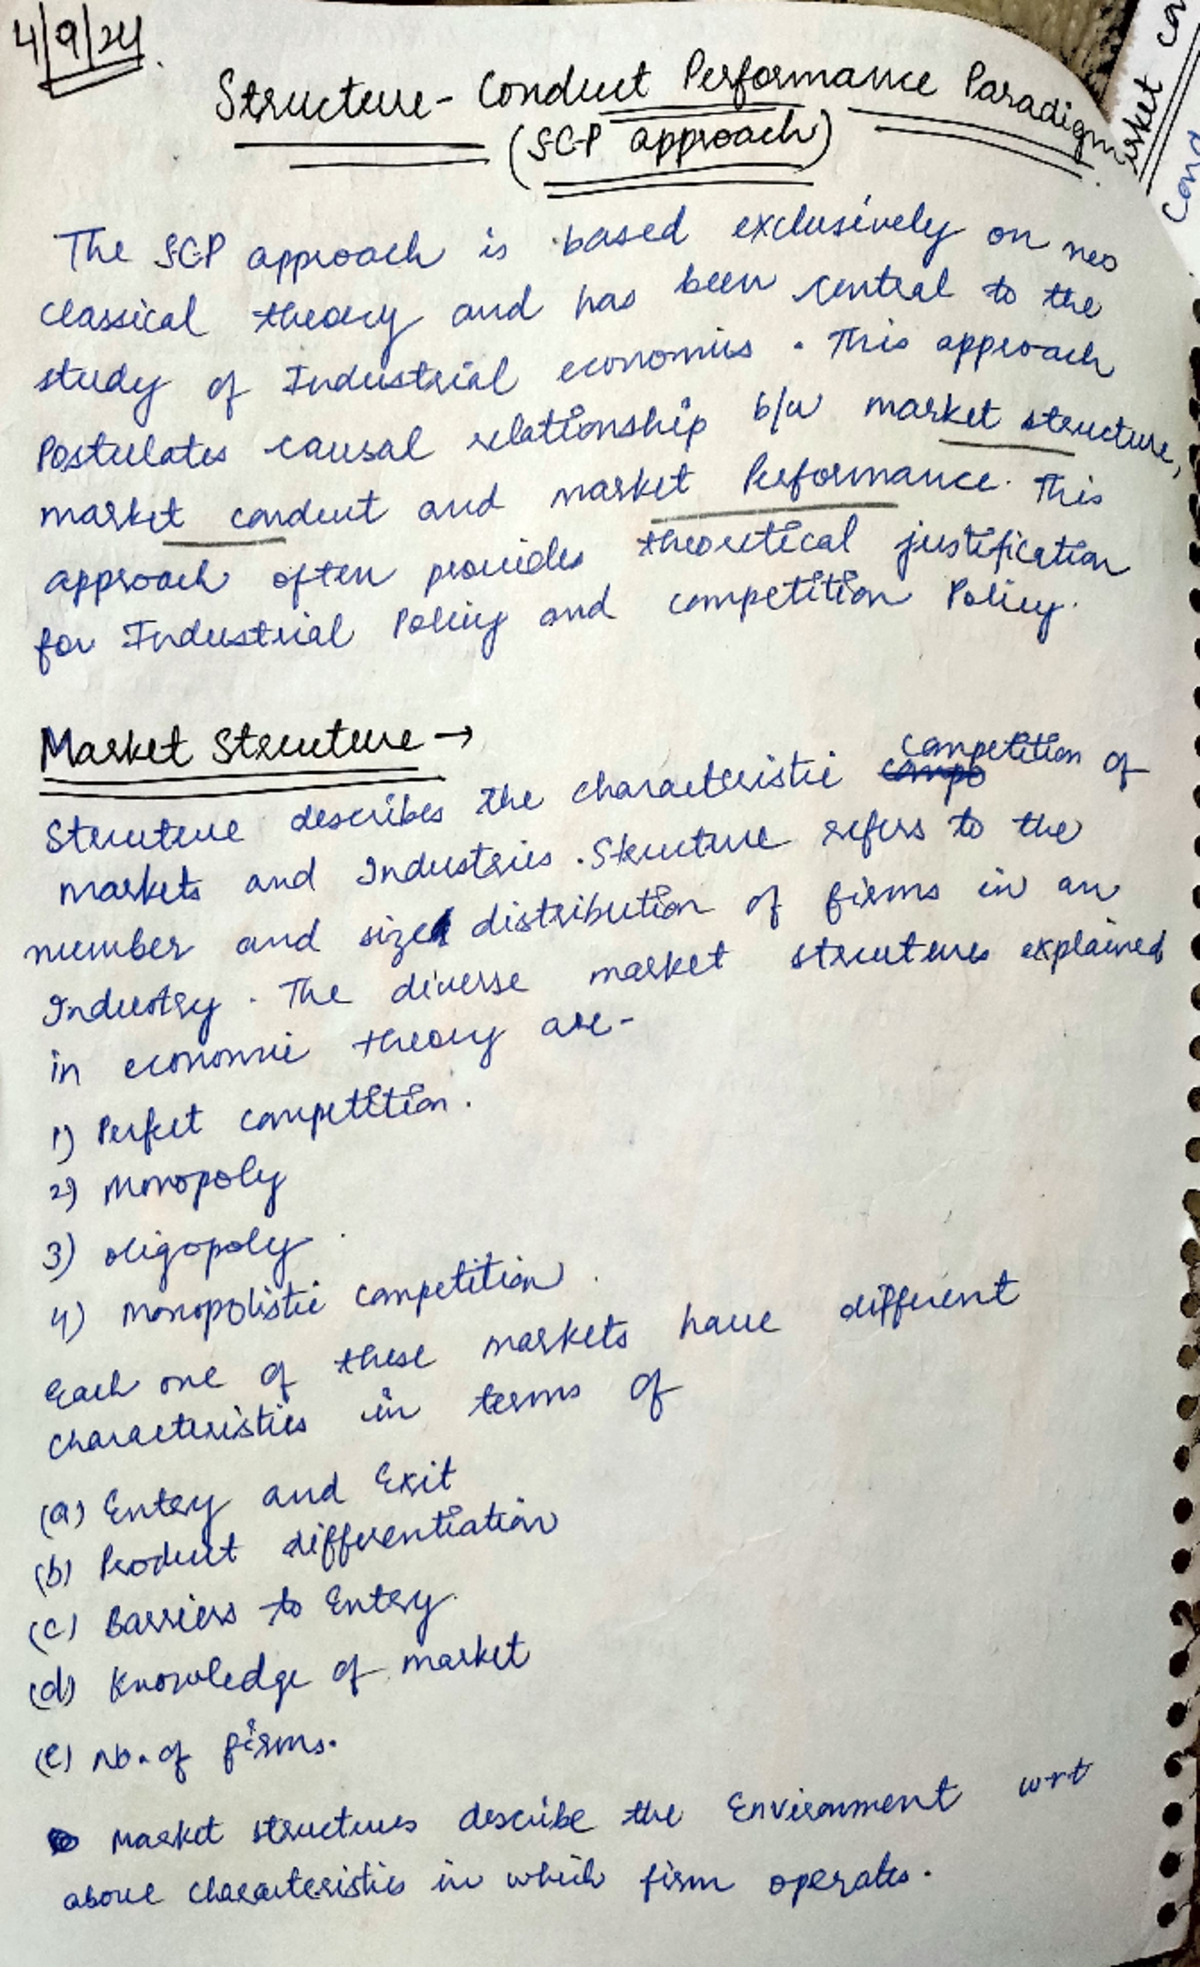 4/9/24.
Structure - Conduct Performance Paradigm.
(SCP approach)
The SCP approach is based exclusively on neo
classical theory and has been central to the
study of Industrial economics. This approach
Postulates causal relationship b/w market structure,
market conduct and market Performance. This
approach often provides theoretical justification
for Industrial Policy and competition Policy.
Market Structure →
Structure describes the characteristic competition of
markets and Industries. Structure refers to the
number and size distribution of firms in an
Industry. The diverse market structures explained
in economic theory are-
1) Perfect competition.
2) Monopoly
3) oligopoly
4) Monopolistic competition.
Each one of these markets have different
characteristics in terms of
(a) Entry and Exit
(b) Product differentiation
(c) Barriers to Entry
(d) Knowledge of market
(e) No. of firms.
Market structures describe the Environment wrt
above characteristics in which firm operates.